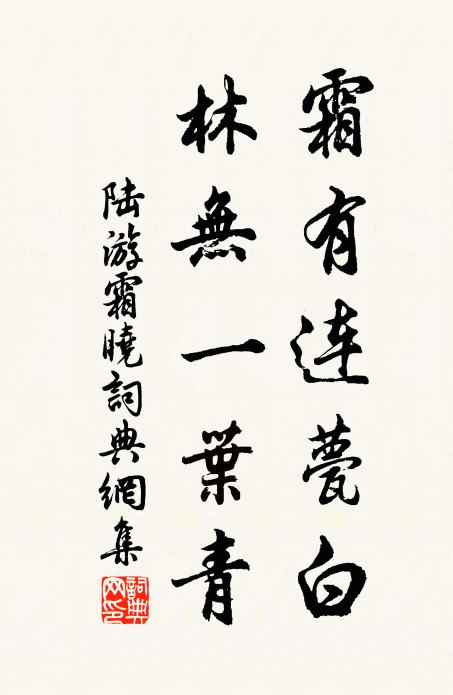 霜有連甍白
林無一葉青
陸游霜曉詞典網集
詞典网印